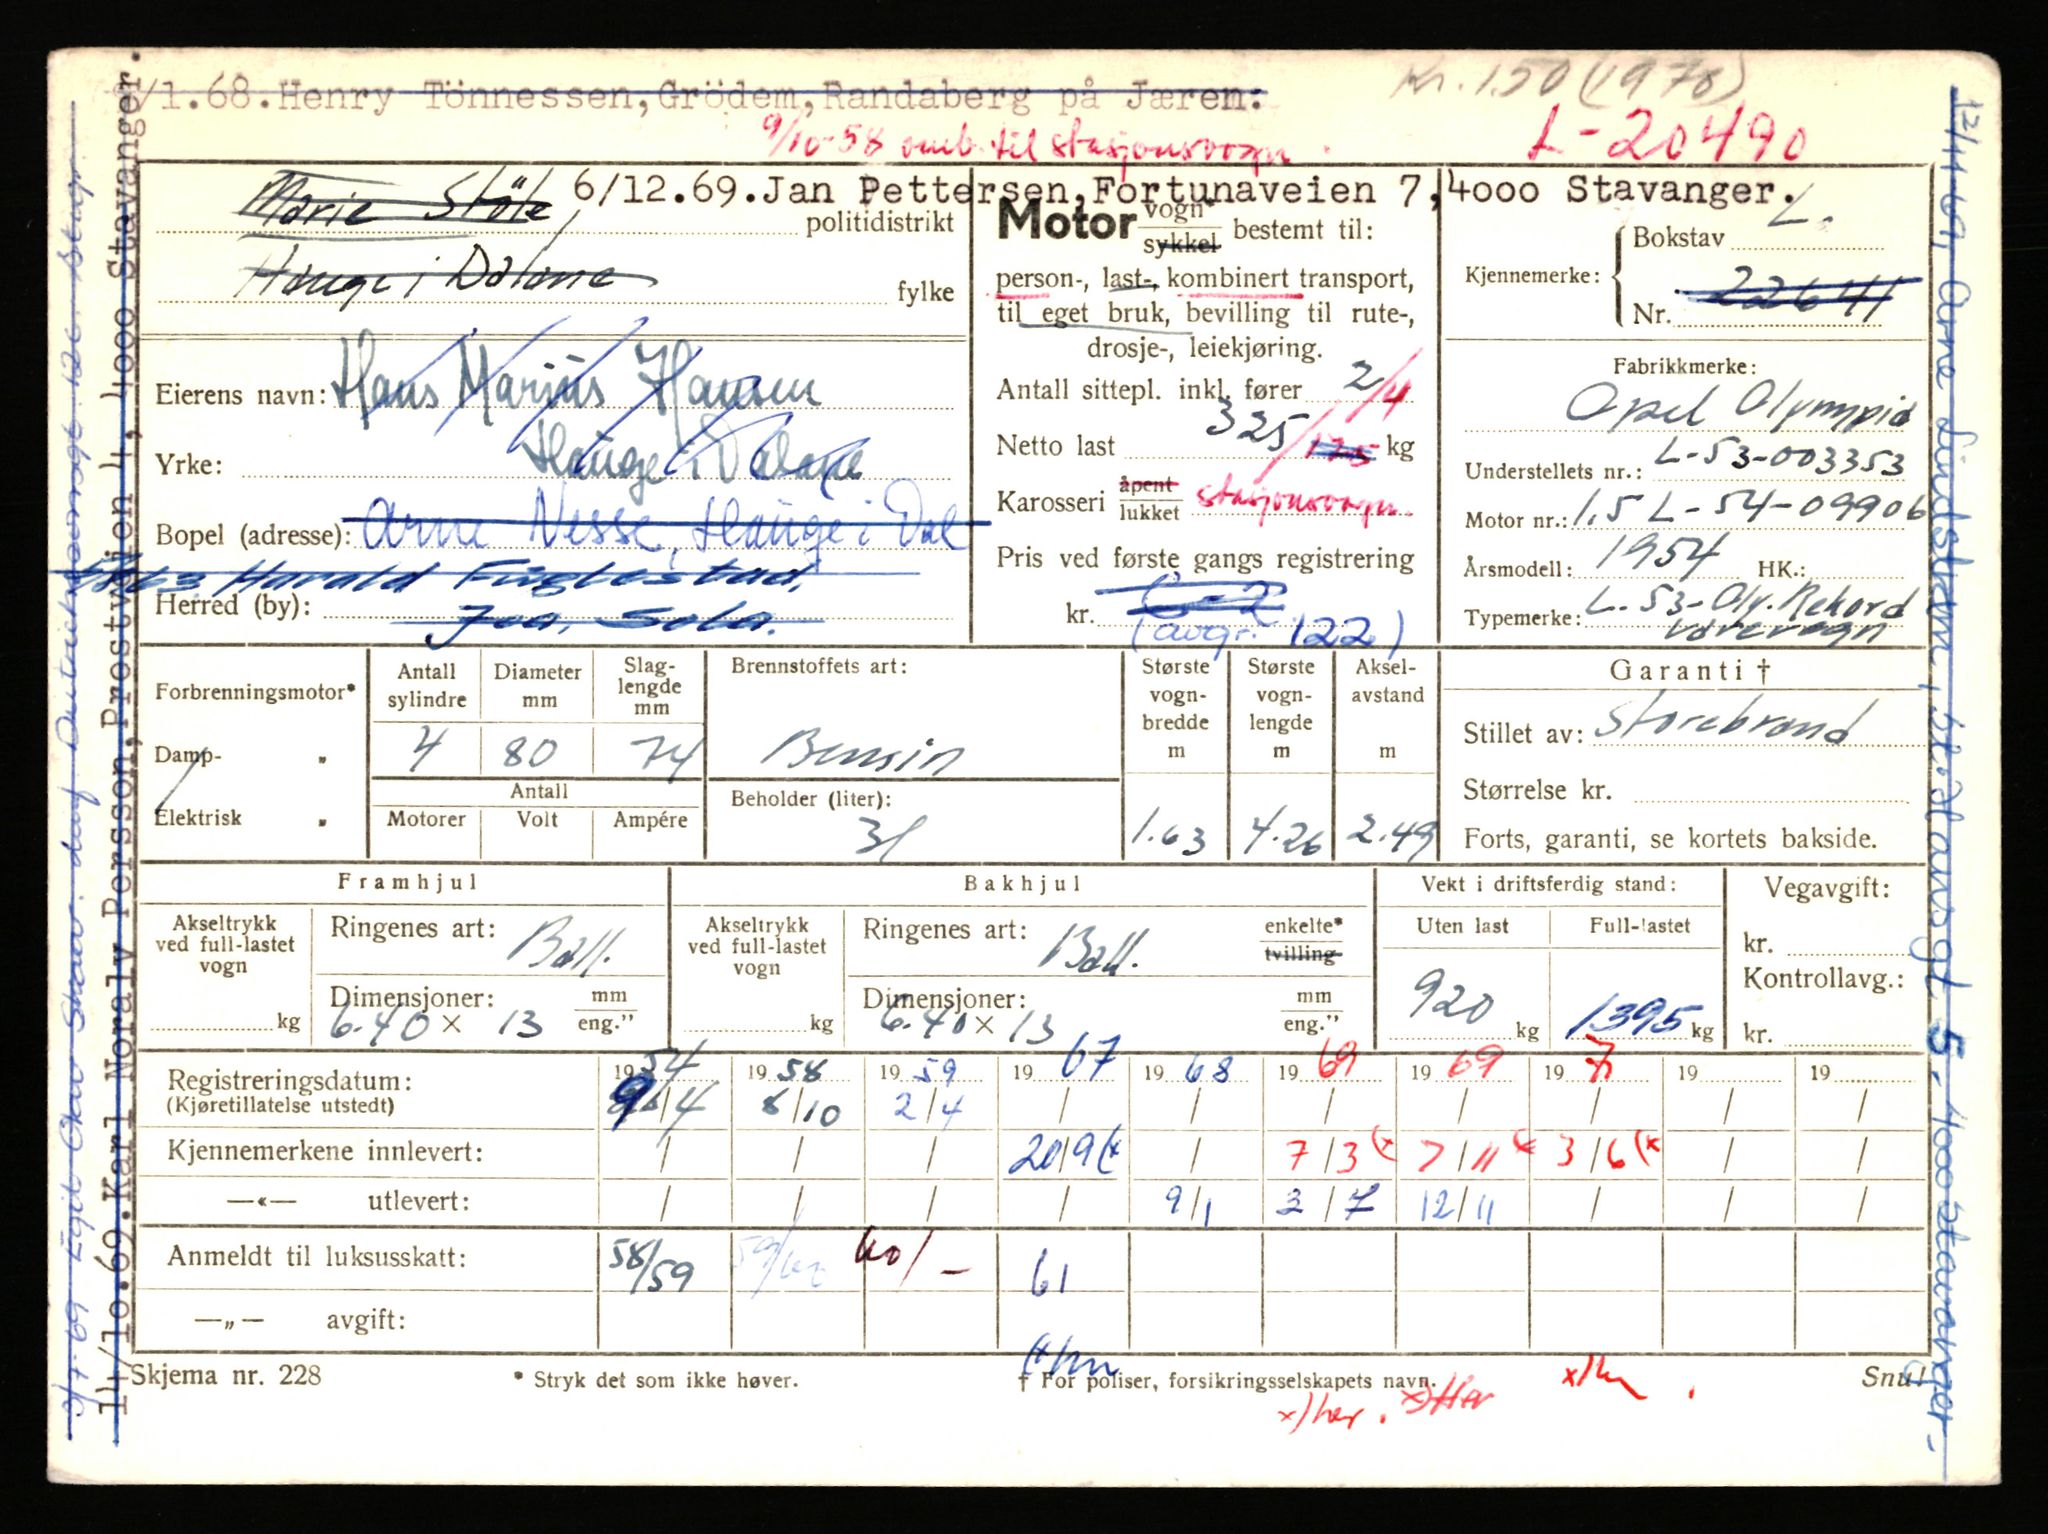 /1.68.Henry Tönnessen, Grödem, Randaberg på Jæren:
Kr. 150 (1978)
9/10-58 omb. til stasjonsvogn.
L-20490
6/12.69.Jan Pettersen, Fortunaveien 7, 4000 Stavanger.
Marie Stöle politidistrikt
Hauge i Dalane fylke
Eierens navn: Hans Marius Hansen
Yrke: Hauge i Dalane
Bopel (adresse): Arne Nesse, Hauge i Dal
Harald Fuglestad,
Herred (by): Joa, Sola.
Motor vogn sykkel bestemt til:
person-, last-, kombinert transport,
til eget bruk, bevilling til rute-,
drosje-, leiekjøring.
Antall sittepl. inkl. fører 2/4
Netto last 325/175 kg
Karosseri åpent lukket stasjonsvogn
Pris ved første gangs registrering
kr.
(avgr. 122)
Kjennemerke: Bokstav L.
Nr. 22641
Fabrikkmerke:
Opel Olympia
Understellets nr.: L-53-003353
Motor nr.: 1,5 L-54-09906
Årsmodell: 1954 HK.:
Typemerke: L.53-Oly. Rekord
varevogn
Forbrenningsmotor*
Damp- „
Elektrisk „
Antall sylindre Diameter mm Slag-lengde mm
4 80 74
Antall
Motorer Volt Ampére
Brennstoffets art:
Bensin
Beholder (liter):
31
Største vogn-bredde m Største vogn-lengde m Aksel-avstand m
1.63 4.26 2.49
Garanti †
Stillet av: Storebrand
Størrelse kr.
Forts, garanti, se kortets bakside.
Framhjul
Akseltrykk ved full-lastet vogn
kg
Ringenes art: Ball.
Dimensjoner: mm eng.”
6.40 x 13
Bakhjul
Akseltrykk ved full-lastet vogn
kg
Ringenes art: Ball. enkelte* tvilling
Dimensjoner: mm eng.”
6.40 x 13
Vekt i driftsferdig stand:
Uten last Full-lastet
920 kg 1395 kg
Vegavgift:
kr.
Kontrollavg.:
kr.
Registreringsdatum: 1954 1958 1959 1967 1968 1969 1969 197 19 19
(Kjøretillatelse utstedt) 9/4 8/10 2/4 / / / / / / /
Kjennemerkene innlevert: / / / 20/9(* / 7/3(* 7/11(* 3/6(* / /
—«— utlevert: / / / / 9/1 3/7 12/11 / / /
Anmeldt til luksusskatt: 58/59 59/60 60/– 61
—„— avgift:
Skjema nr. 228
* Stryk det som ikke høver.
† For poliser, forsikringsselskapets navn.
Snu!
14/10.69.Karl Noralv Persson, Prostveien 4, 4000 Stavanger.
12/11 69, Arne Lindstrøm, 5. 4000 Stavanger.